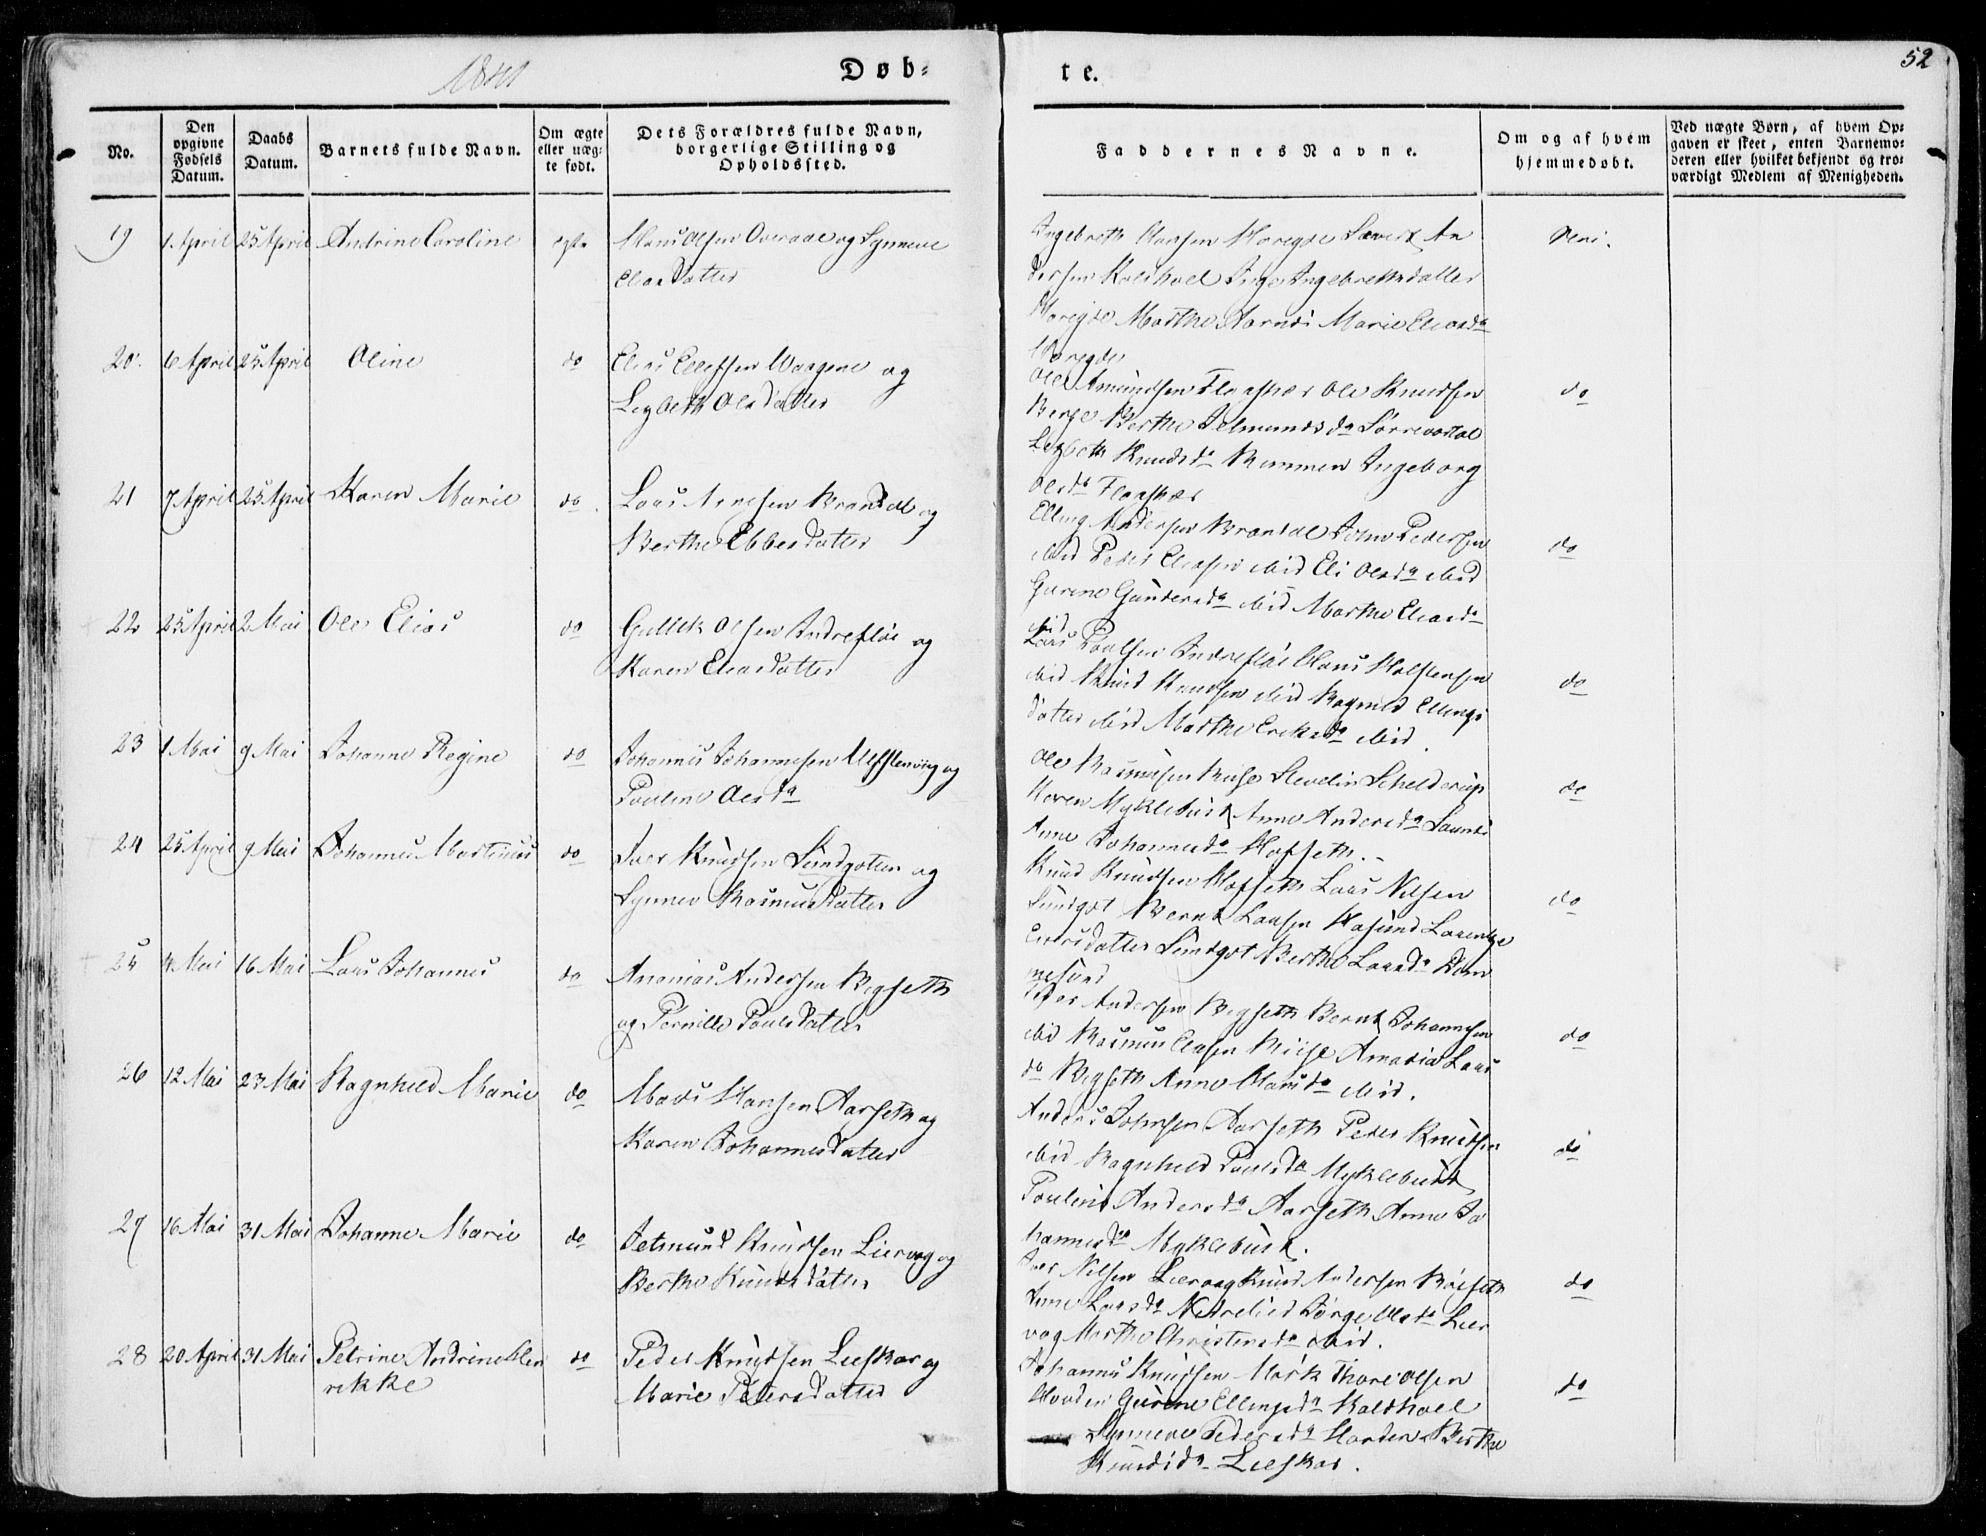 1841
Døb-
te.
52
No.
Den opgivne Fødsels Datum.
Daabs Datum.
Barnets fulde Navn.
Om ægte eller uæg-te født.
Dets Forældres fulde Navn, borgerlige Stilling og Opholdssted.
Faddernes Navne.
Om og af hvem hjemmedøbt.
Ved uægte Børn, af hvem Op-gaven er skeet, enten Barnemo-deren eller hvilket bekjendt og tro-værdigt Medlem af Menigheden.
19 1 April 25 April Andrine Caroline ægte Hans Olsen Overaae og Synneve
Eliasdatter
Ingebreth Hansen Hareide Sivert An
dersen Kaldhoel Inge Ingebrethsdatter
Hareide Marthe Marie Eliasda
Hareide
Nei.
20. 6 April 25 April Oline do Elias Ellefsen og
Lisbeth Olsdatter
Ole Amundsen Flaaskjær Ole Knudsen
Berge Berthe Jetmundsda
Lisbeth Knudsda Ingeborg
Olsda Flaaskjær
do
21 7 April 25 April Karen Marie do. Lars Arnesen Brandal og
Berthe Ebbesdatter
Elling Andersen Brandal John Pedersen
ibid Peder Eliasen ibid Eli Olsda ibid
Gurine Gundersda ibid Marthe Eliasda
ibid
do
22 25 April 2 Mai Ole Elias do Gullik Olsen Indrefløe og
Karen Eliasdatter
Lars Poulsen Indrefløe Hans Halstensen
ibid Knud Knudsen ibid Ragnild Ellings
datter ibid Marthe Eriksda ibid.
do
23 1 Mai 9 Mai Johanne Regine do Johannes Johannesen Ulfstenvig og
Pauline Olsda
Ole Rasmusen Riise Stevelin Schelderup
Karen Myklebust Anne Andersda
Anne Johannesda Hofseth.
do
24 25 April 9 Mai Johannes Martinus do Iver Knudsen Sundgoten og
Synnev Rasmusdatter
Knud Knudsen Hofseth Lars Nilsen
Sundgot Bernt Larsen Hasund Laurentze
Iversdatter Sundgot Berthe Larsda Dim
nesund
do
25 4 Mai 16 Mai Lars Johannes do Ananias Andersen Rigseth
og Pernille Poulsdatter
Peder Andersen Rigseth Bernt Johannesen
ibid Rasmus Eliasen Riise Amalia Lars
da Rigseth Anne Hansda ibid.
do
26 12 Mai 23 Mai Ragnhild Marie do Mads Hansen Aarseth og
Karen Johannesdatter
Anders Johnsen Aarseth Peder Knudsen
ibid Ragnhild Poulsda Myklebust
Pauline Andersda Aarseth Anne Jo
hannesda Myklebust.
do
27 16 Mai 31 Mai Johanne Marie do Jetmund Knudsen Liervog og
Berthe Knudsdatter
Iver Nilsen Liervaag Knud Andersen Røiseth
Anne Larsda Nedrelied Jørge Olsda Lier
vog Marthe Christensda ibid.
do
28 20 April 31 Mai Petrine Andrine Hen
rikke do Peder Knudsen Leeskar og
Marie Petersdatter
Johannes Knudsen Mork Thore Olsen
Hovden Gurine Ellingsda Kaldhoel
Synneve Pedersda Hovden Berthe
Knudsda Leeskar.
do